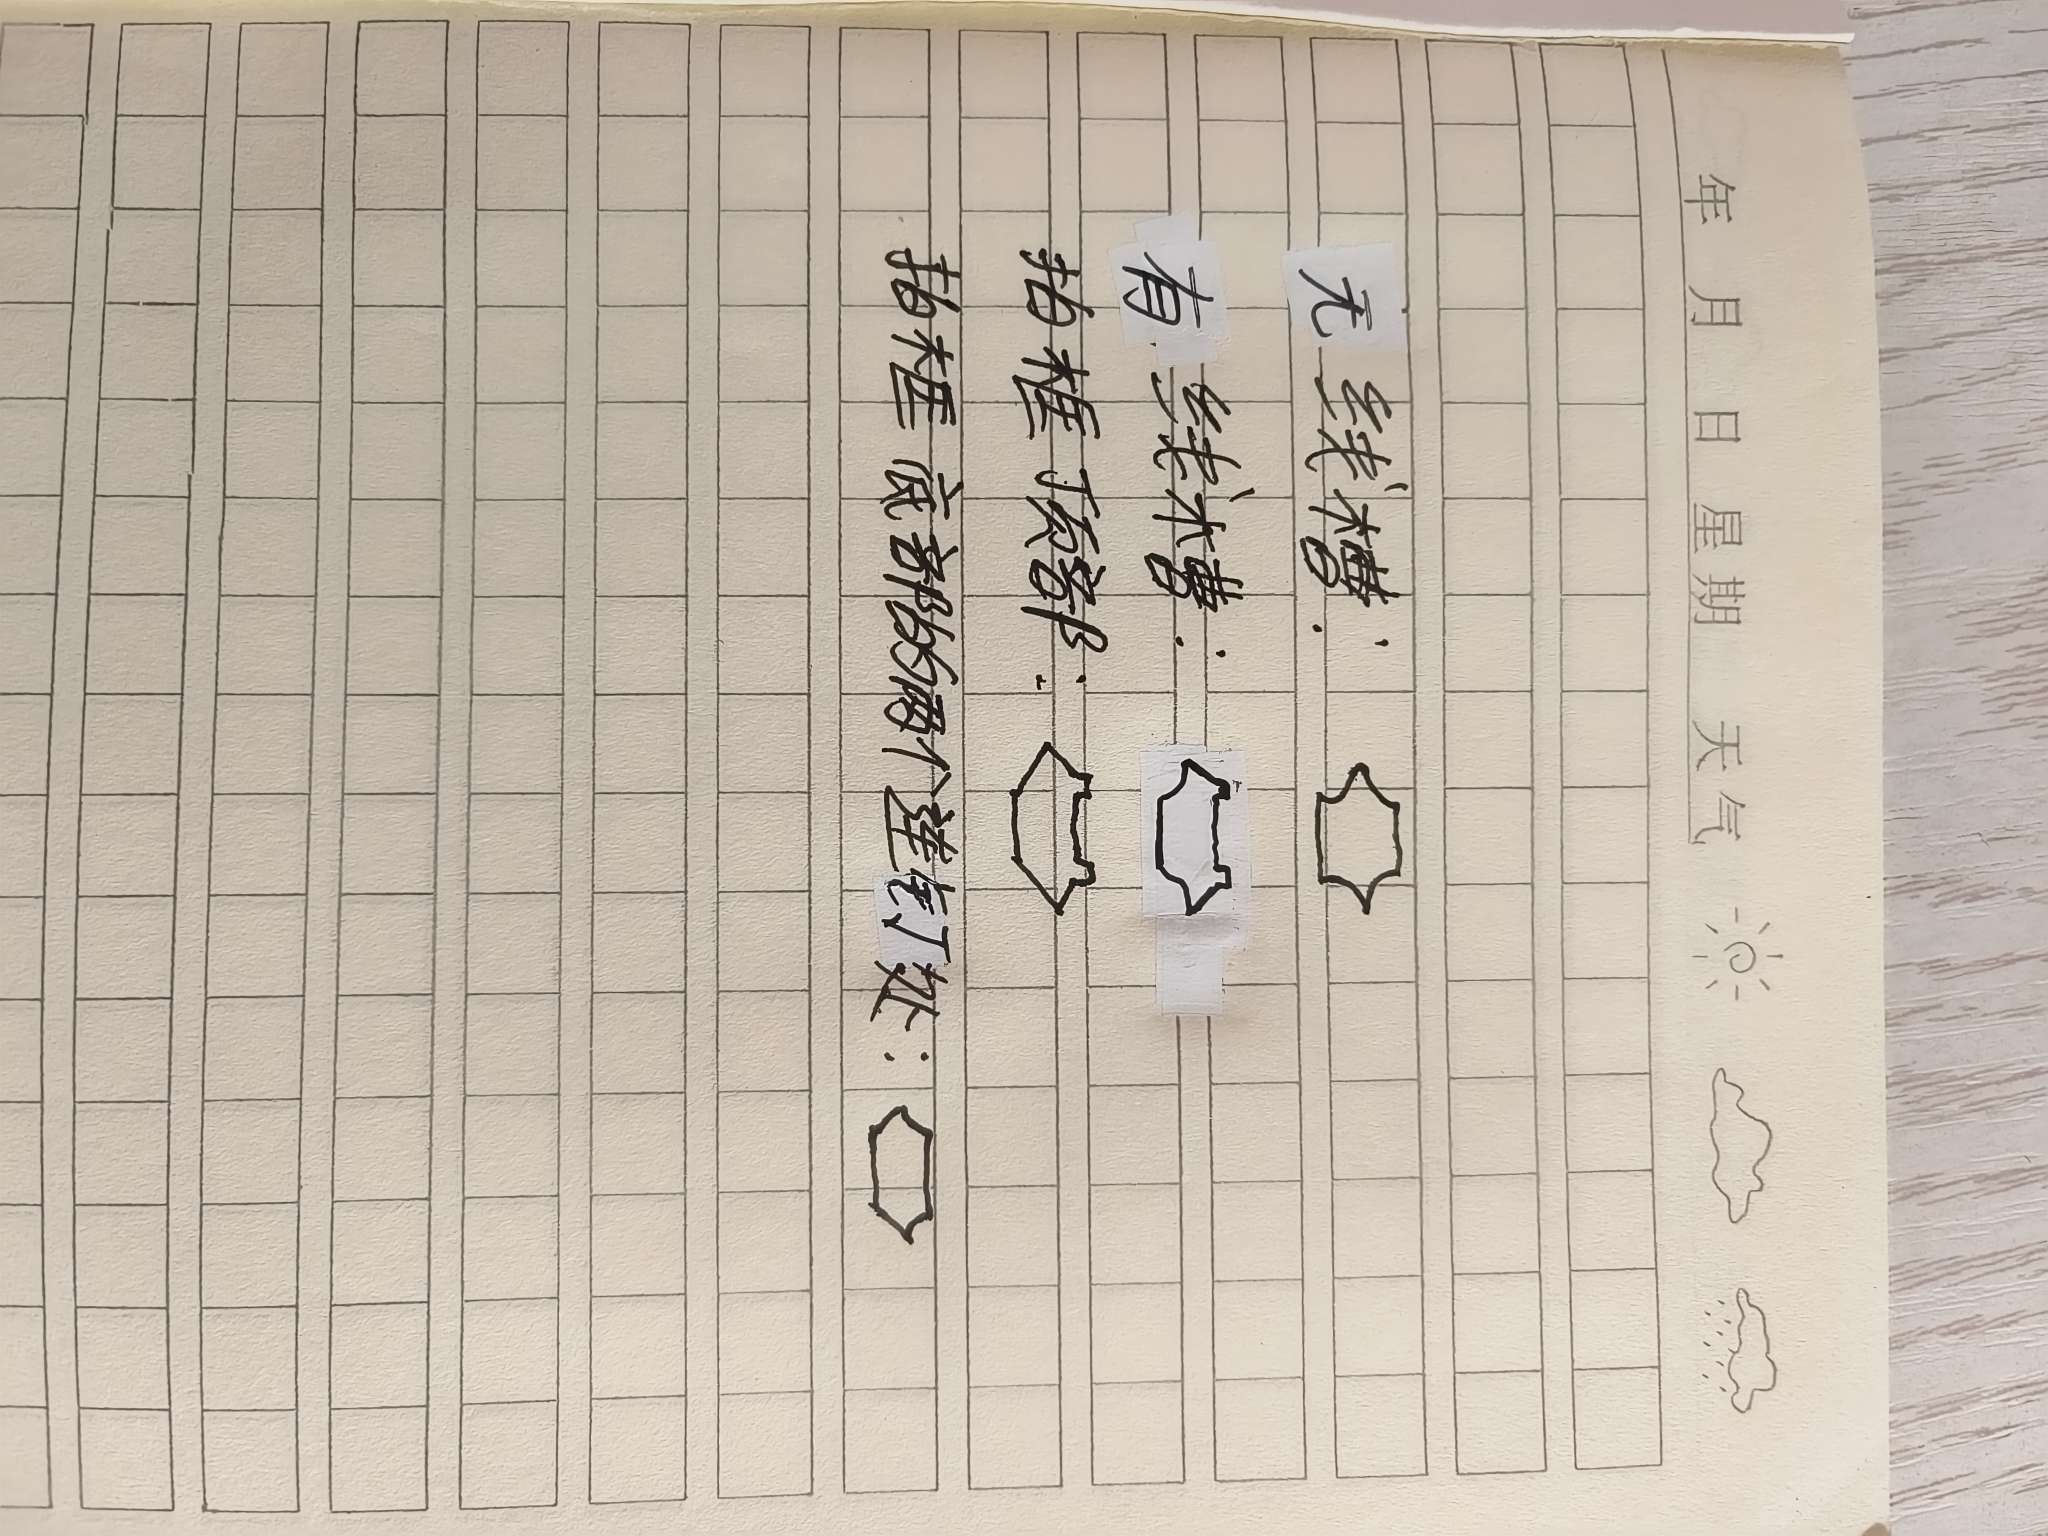 年 月 日 星期 天气
无线槽:
有线槽:
拍框顶部:
拍框底部的两个连钉处: